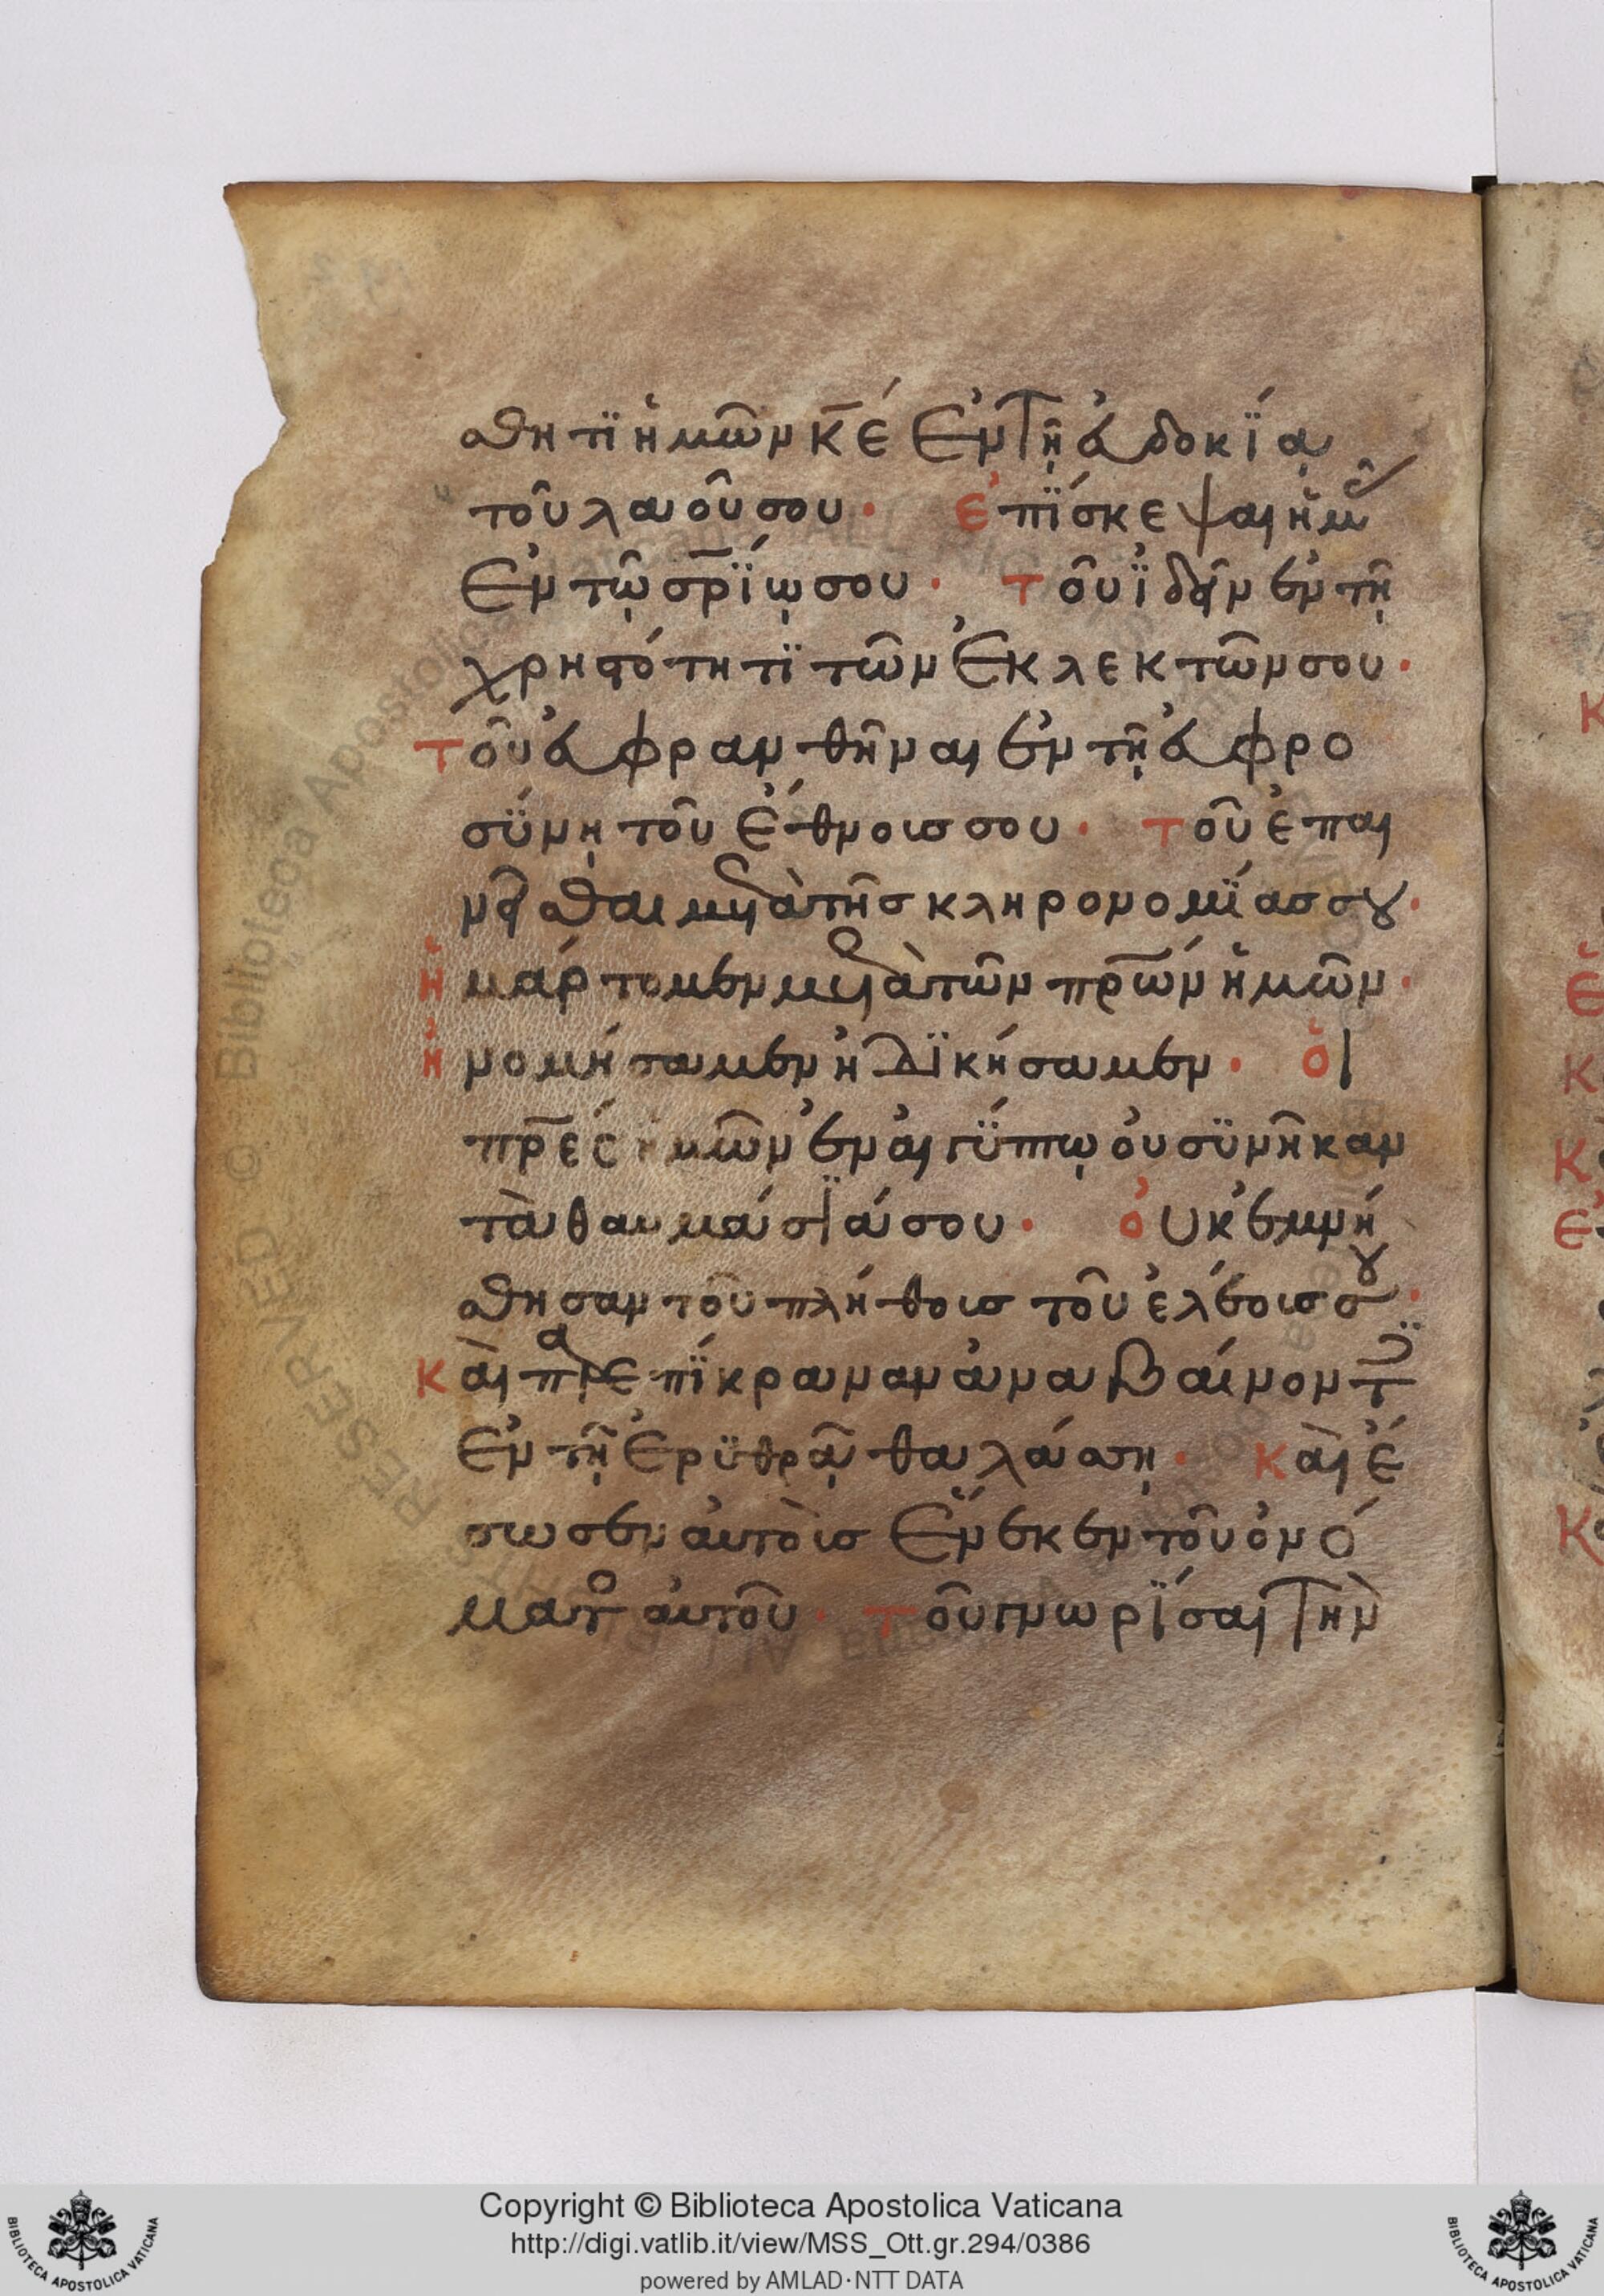 σθητϊ ἡμῶν κ̅ε̅ ἐν τῇ ἐυδοκΐᾳ
τοῦ λαοῦ σου· ἐπΐσκεψαι ἡμᾶς
ἐν τῷ σ̅ρ̅ΐῳ σου· τοῦ ϊδεῖν ἐν τῇ
χρηστότητϊ τῶν ἐκλεκτῶν σου·
τοῦ ἐυφρανθῆναι ἐν τῇ ἐυφρο
σύνῃ τοῦ ἔθνοισ σου· τοῦ ἐπαι
νεῖσθαι μετὰ τῆσ κληρονομΐασ σου·
ἡμάρτομεν μετὰ τῶν π̅ρ̅ων ἡμῶν·
ἠνομήσαμεν ἠδϊκήσαμεν· ὁι
π̅ρ̅ες ἡμῶν ἐν ἀιγΰπτῳ ὀυ σϋνῆκαν
τὰ θαυμάσϊά σου· ὀυκ ἐμνή
σθησαν τοῦ πλήθοισ τοῦ ἐλέοισ σου·
κὰι παρεπΐκραναν ἀναβαίνοντϊ
ἐν τῇ ἐρϋθρᾷ θαλάσσῃ· κὰι ἔ
σωσεν ἀυτὸισ ἔνεκεν τοῦ ὀνό
ματος ἀυτοῦ· τοῦ γνωρΐσαι τὴν
Copyright © Biblioteca Apostolica Vaticana
http://digi.vatlib.it/view/MSS_Ott.gr.294/0386
powered by AMLAD·NTT DATA